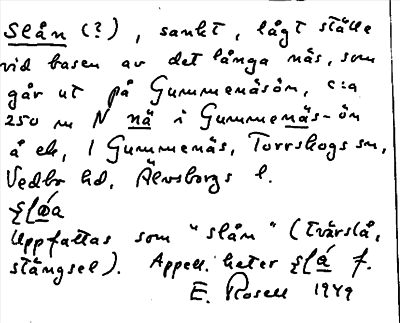 Slån (?), sankt, lågt ställe
vid basen av det långa näs, som
går ut på Gummenäsön, c:a
250 m N nä i Gummenäs-ön
å ek, 1 Gummenäs, Torrskogs sn,
Vedbo hd, Älvsborgs l.
Uppfattas som "slån" (tvärslå,
stängsel). Appell. heter f.
E. Rosell 1949